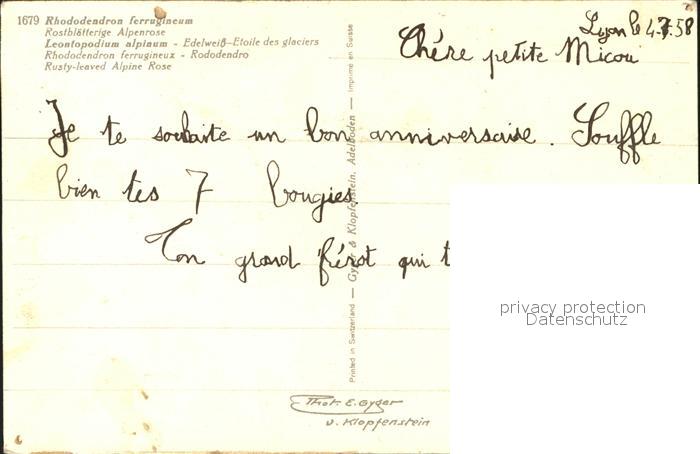 1679 Rhododendron ferrugineum
Rostblätterige Alpenrose
Leontopodium alpinum - Edelweiß-Etoile des glaciers
Rhododendron ferrugineux - Rododendro
Rusty-leaved Alpine Rose
Lyon le 4.7.58
Chére petite Micou
Je te souhaite un bon anniversaire. Souffle
bien tes 7 bougies
Ton grand frérot qui t
Printed in Switzerland — Gyger & Klopfenstein, Adelboden — Imprimé en Suisse
privacy protection
Datenschutz
Phot. E. Gyger
u. Klopfenstein